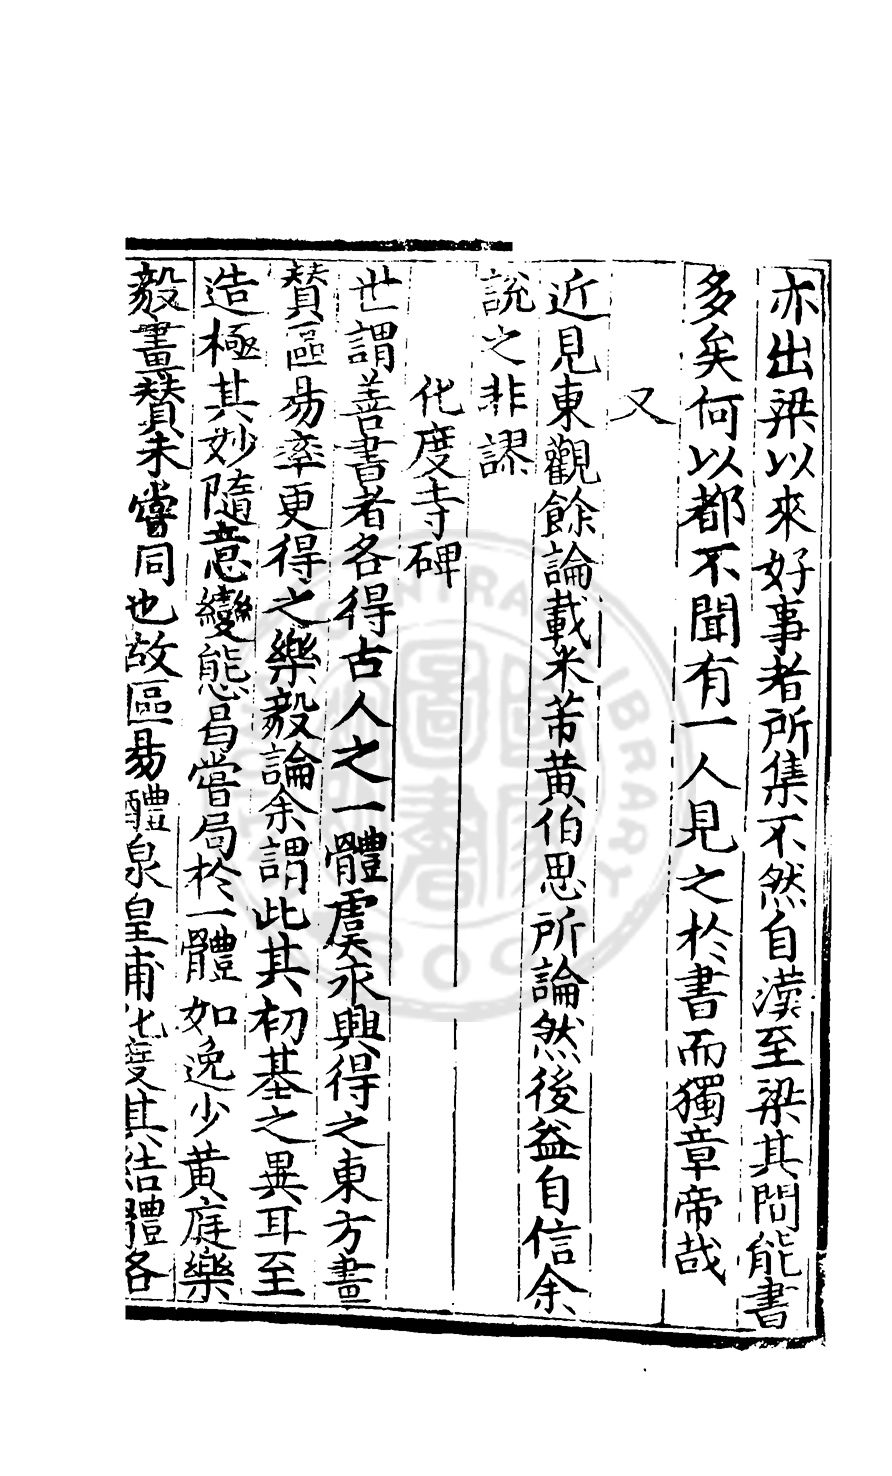 亦出梁以來好事者所集不然自漢至梁其間能書
多矣何以都不聞有一人見之於書而獨章帝哉
又
近見東觀餘論載米芾黄伯思所論然後益自信余
說之非謬
化度寺碑
世謂善書者各得古人之一體虞永興得之東方畫
賛區昜率更得之樂毅論余謂此其初基之異耳至
造極其妙隨意變態曷嘗局於一體如逸少黄庭樂
毅畫賛未嘗同也故區昜醴泉皇甫化度其結體各